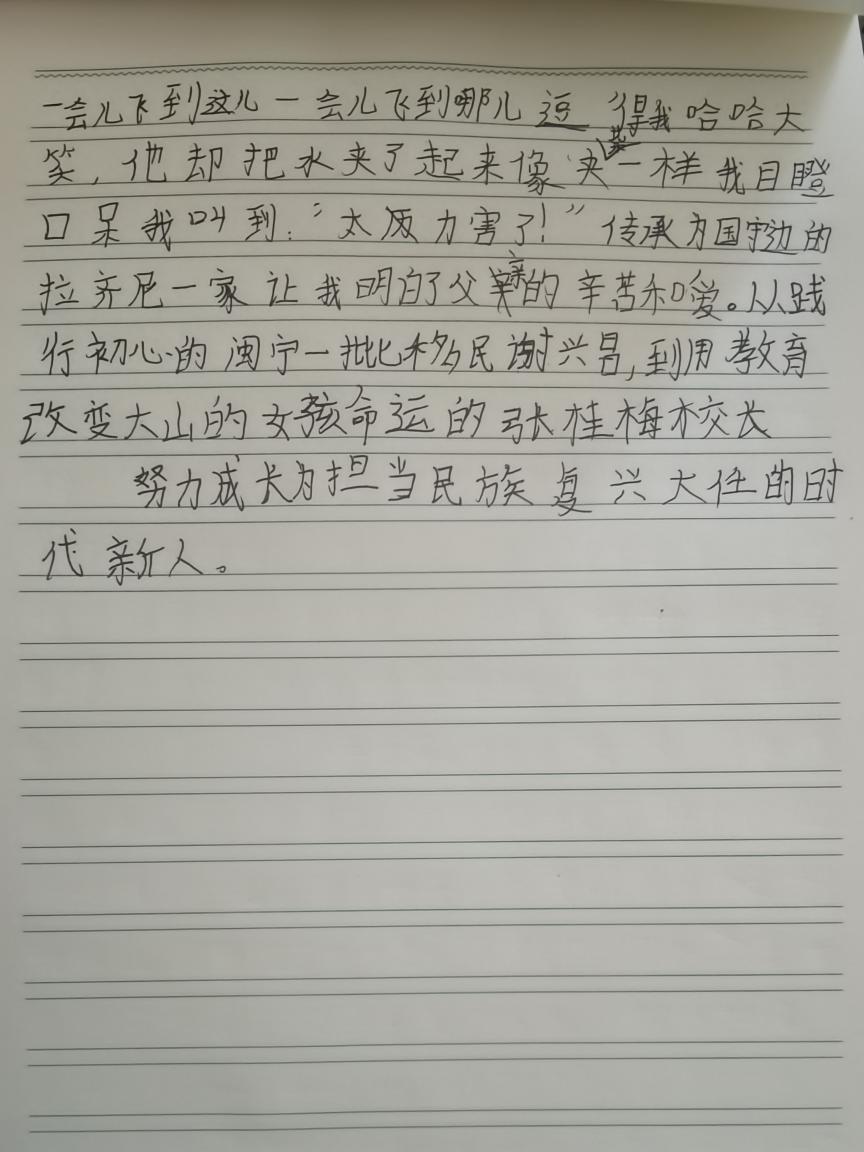 一会儿飞到这儿一会儿飞到哪儿逗得我哈哈大
笑，他却把水夹了起来像夹一样我目瞪
口呆我叫到：“太厉力害了！”传承为国守边的
拉齐尼一家让我明白了父亲的辛苦和爱。从践
行初心的闽宁一批移民谢兴昌，到用教育
改变大山的女孩命运的张桂梅校长
努力成长为担当民族复兴大任的时
代新人。